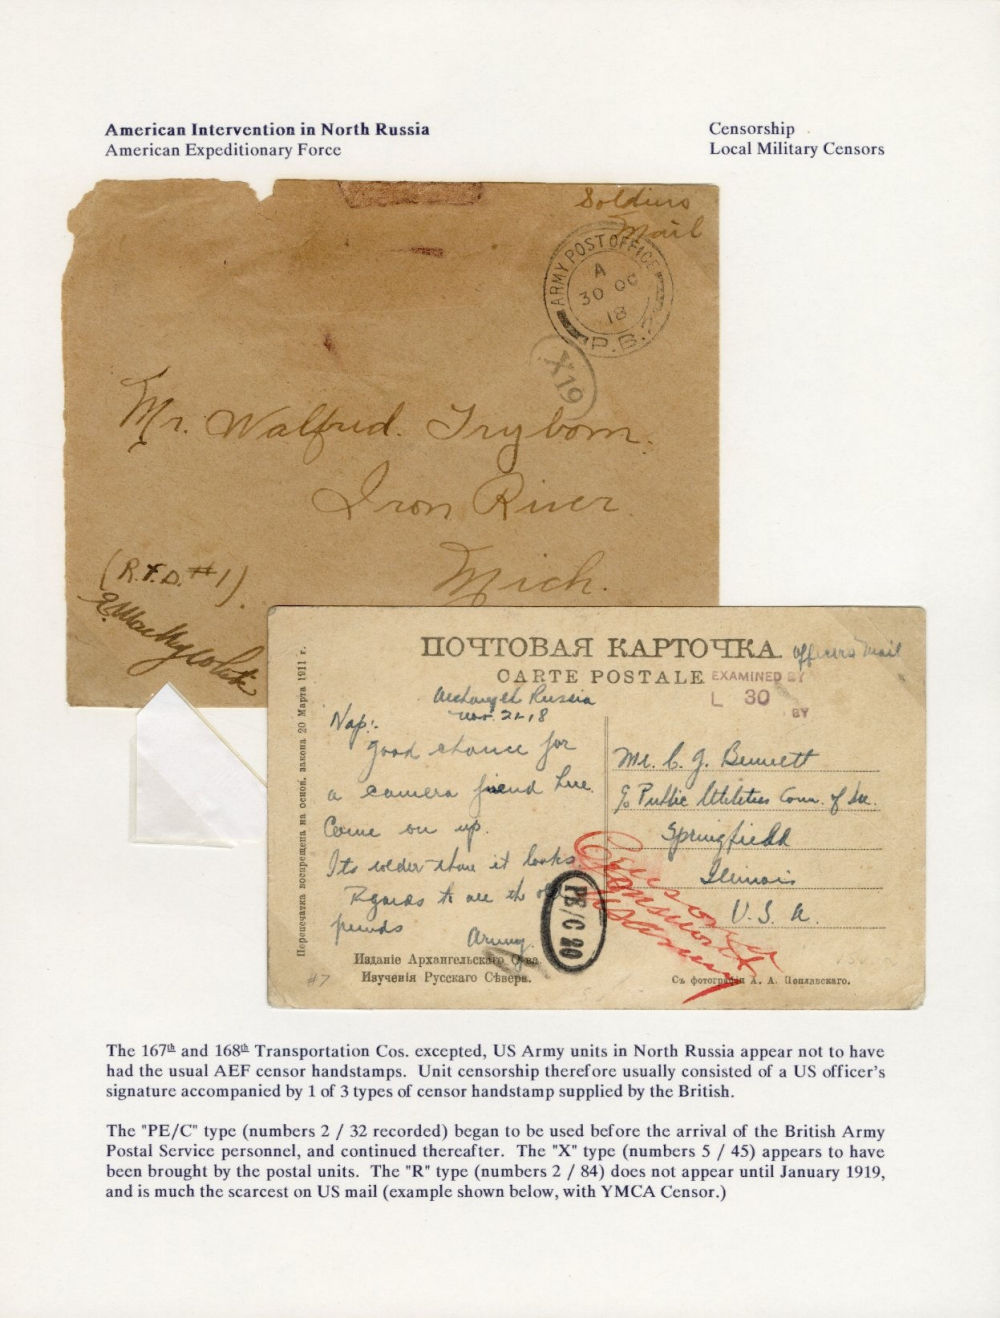 American Intervention in North Russia
American Expeditionary Force
Censorship
Local Military Censors
Soldiers
Mail
ARMY POST OFFICE
A
30 OC
18
P.B.
X19
Mr. Walfrid. Trybom.
Iron River.
Mich.
(R.F.D. #1).
ПОЧТОВАЯ КАРТОЧКА.
CARTE POSTALE
Officers Mail
EXAMINED BY
L 30
BY
Перепечатка воспрещена на основ. закона 20 Марта 1911 г.
Archangel Russia
Nov. 21-18
Nap:
Good chance for
a camera friend here.
Come on up.
Its colder than it looks
Regards to all the
Mr. C. J. Bennett
% Public Utilities Com. of
Springfield
Illinois
U.S.A.
PE/C 20
Изданіе Архангельскаго О-ва.
Изученія Русскаго Сѣвера.
Съ фотографіи А. А.
#7
The 167th and 168th Transportation Cos. excepted, US Army units in North Russia appear not to have
had the usual AEF censor handstamps. Unit censorship therefore usually consisted of a US officer's
signature accompanied by 1 of 3 types of censor handstamp supplied by the British.
The "PE/C" type (numbers 2 / 32 recorded) began to be used before the arrival of the British Army
Postal Service personnel, and continued thereafter. The "X" type (numbers 5 / 45) appears to have
been brought by the postal units. The "R" type (numbers 2 / 84) does not appear until January 1919,
and is much the scarcest on US mail (example shown below, with YMCA Censor.)